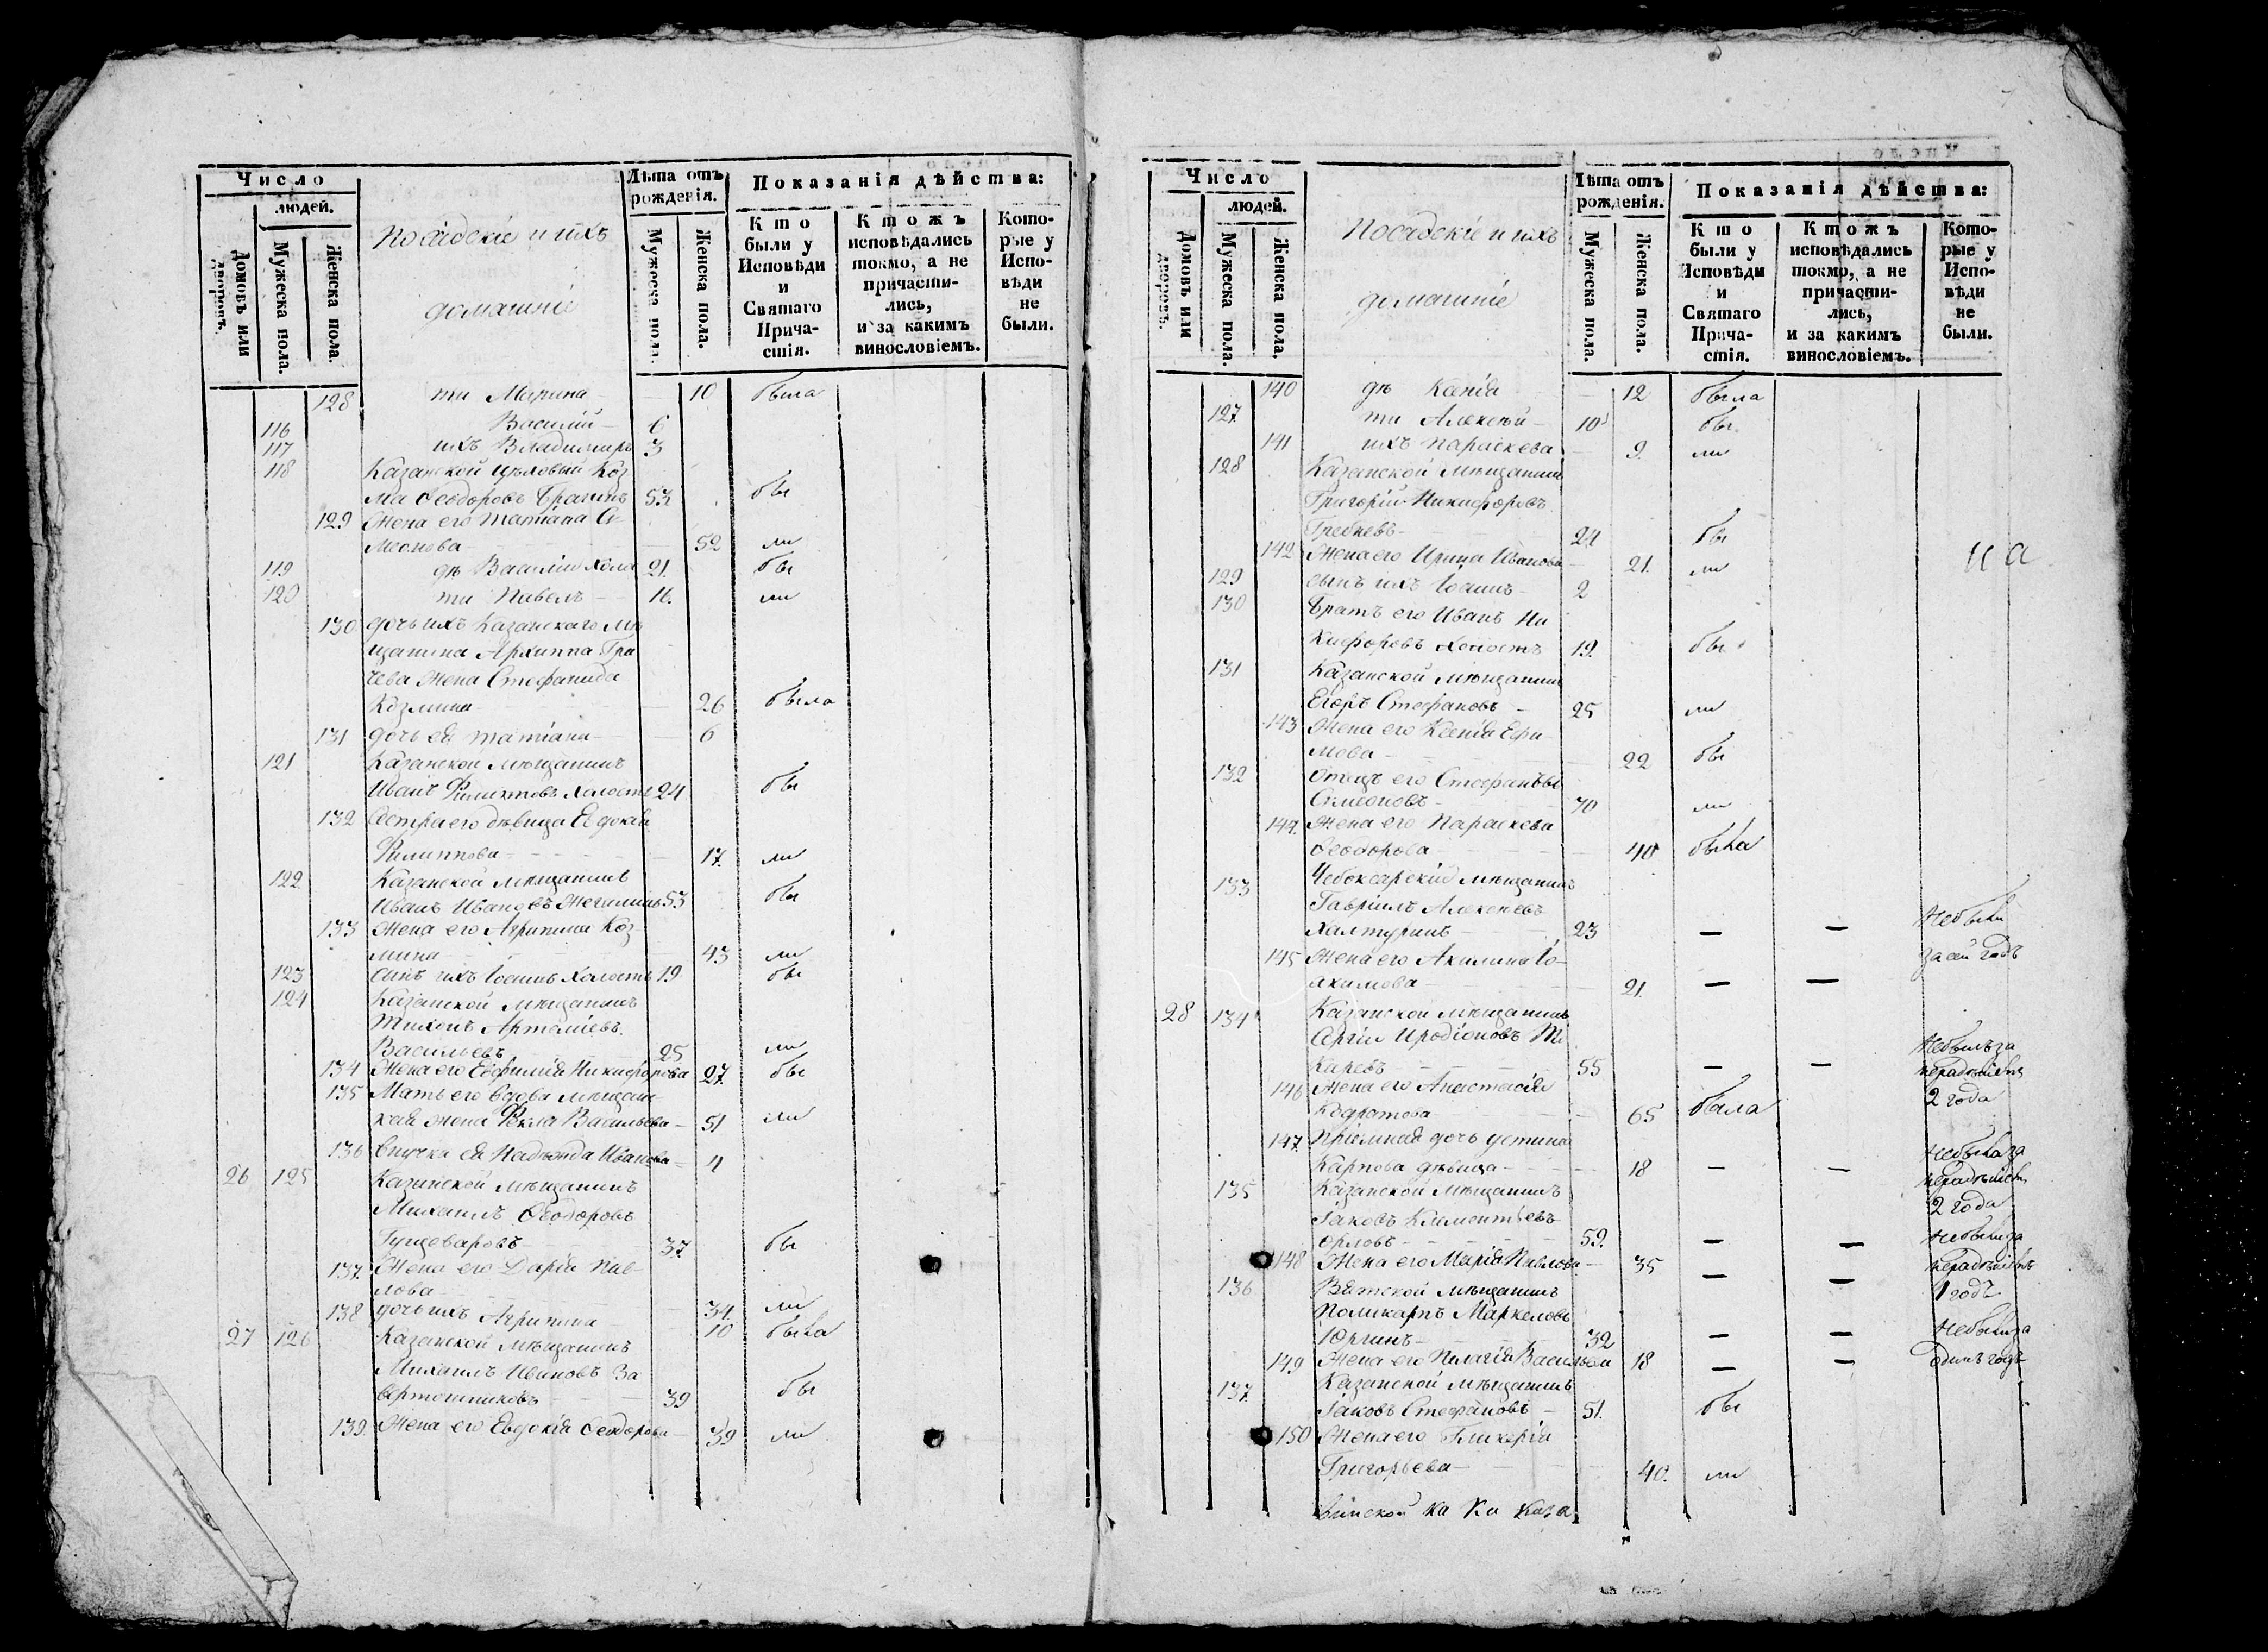 Число
людей.
Домовъ или дворовъ.
Мужеска пола.
Женска пола.
Посадскіе и ихъ
домашніе
Лѣта отъ
рожденія.
Мужеска пола.
Женска пола.
Показанія дѣйства:
Кто
были у
Исповѣди
и
Святаго
Прича-
стія.
Ктожъ
исповѣдались
токмо, а не
причасти-
лись,
и за какимъ
винословіемъ.
Кото-
рые у
Испо-
вѣди
не
были.
128 ти Марина 10 была
116 Василій 6
117 ихъ Владимиръ 3
118 Казанской цѣховый Коз
ма Ѳеодоровъ Брагинъ 53 бы
129 Жена его Татіана Си
меонова 52 ли
119 дѣ Василій холос 21. бы
120 ти Павелъ 16. ли
130 дочь ихъ Казанскаго мѣ
щанина Архиппа Гра
чева жена Стефанида
Козмина 26 была
131 дочь ея Татіана 6
121 Казанской мѣщанинъ
Иванъ Филиповъ холостъ 24 бы
132 Сестра его дѣвица Евдокія
Филиппова 17. ли
122 Казанской мѣщанинъ
Иванъ Ивановъ 53 бы
133 Жена его Агрипина Коз
мина 43 ли
123 Сынъ ихъ Іоаннъ холостъ 19 бы
124 Казанской мѣщанинъ
Тихонъ Артеміевъ
Васильевъ 25 ли
134 Жена его Евфимія Никифорова 27. бы
135 Мать его вдова мѣщан
кая жена Фекла Васильева 51 ли
136 Внучка ея Надежда Иванова 4
26 125 Казанской мѣщанинъ
Михаилъ Ѳеодоровъ
37. бы
137. Жена его Дарія Пав-
лова 34. ли
138 дочь ихъ Агрипина 10 была
27 126 Казанской мѣщанинъ
Михаилъ Ивановъ За
вертошниковъ 39 бы
139 Жена его Евдокія Ѳеодорова 39 ли
Число
людей.
Домовъ или дворовъ.
Мужеска пола.
Женска пола.
Посадскіе и ихъ
домашніе
Лѣта отъ
рожденія.
Мужеска пола.
Женска пола.
Показанія дѣйства:
Кто
были у
Исповѣди
и
Святаго
Прича-
стія.
Ктожъ
исповѣдались
токмо, а не
причасти-
лись,
и за какимъ
винословіемъ.
Кото-
рые у
Испо-
вѣди
не
были.
140 дѣ Ксенія 12 была
127 ти Алексѣй 10 бы
141 ихъ Параскева 9. ли
128 Казанской мѣщанинъ
Григорій Никифоровъ
Гребневъ 24 бы
142 Жена его Ирина Иванова 21. ли
129 сынъ ихъ Іоаннъ 2
130 Братъ его Иванъ Ни
кифоровъ холостъ 19. бы
131 Казанской мѣщанинъ
Егоръ Стефановъ 25 ли
143 Жена его Ксенія Ефи-
мова 22 бы
132 Отецъ его Стефанъ
Симеоновъ 70 ли
144. Жена его Параскева
Ѳеодорова 40 была
133 Чебоксарскій мѣщанинъ
Гавріилъ Алексѣевъ
Халтуринъ 23 — — Небыли
145 Жена его Акилина Іо- за сей годъ
акимова 21. — —
28 134 Казанской мѣщанинъ
Сергій Иродіоновъ То
каревъ 55 — — Небылъ за нерадѣніемъ
146 Жена его Анастасія 2 года
Кодратова 65 была
147. Пріемная дочь Устина
Карпова дѣвица 18 — — Небыла за нерадѣніемъ
135 Казанской мѣщанинъ 2 года
Іаковъ Климентьевъ
Орловъ 59. — — Небыли за
148 Жена его Марія Павлова 35 — — нерадѣніемъ
136 Вятской мѣщанинъ 1 годъ
Поликарпъ Маркеловъ
Юргинъ 32 — — Небыли за
149 Жена его Пелагія Васильева 18 — — одинъ годъ
137. Казанской мѣщанинъ
Іаковъ Стефановъ 51. бы
150 Жена его Гликерія
Григорьева 40. ли